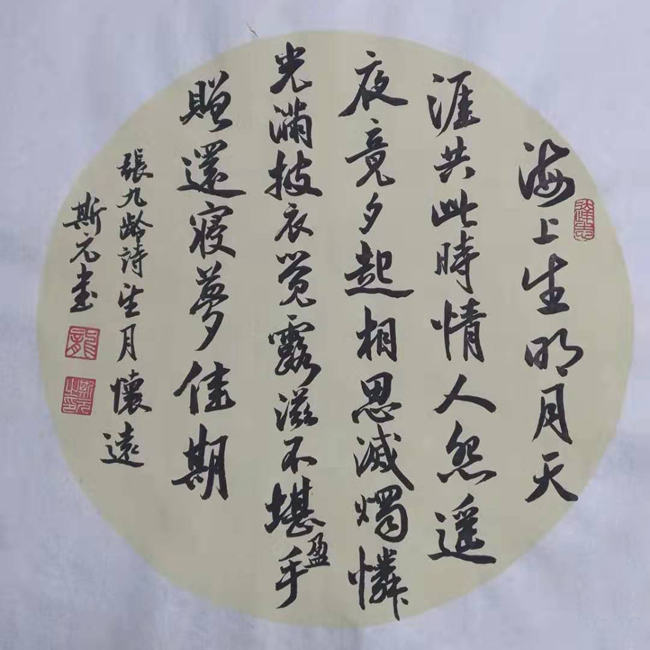 海上生明月天
涯共此時情人怨遥
夜竟夕起相思滅燭憐
光滿披衣覺露滋不堪盈手
贈還寢夢佳期
張九齡詩望月懷遠
斯元書